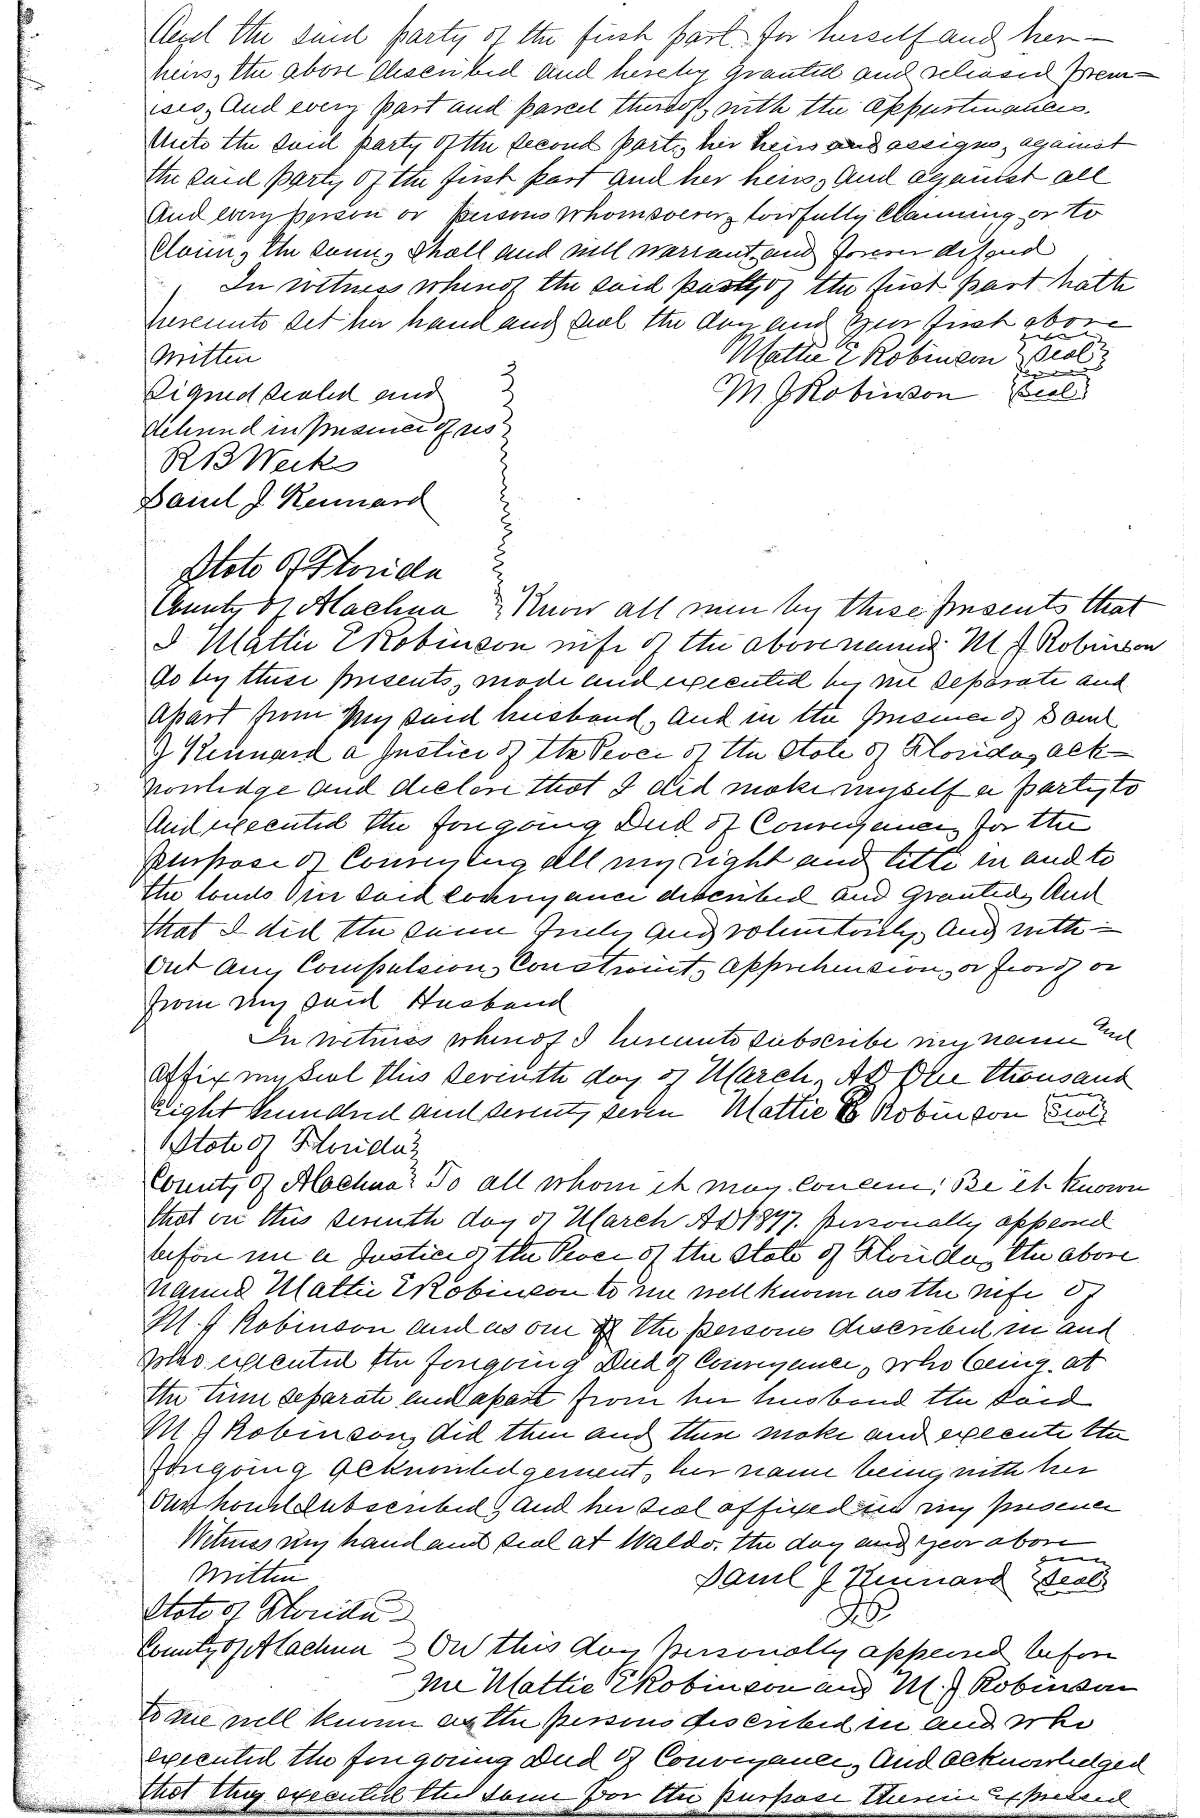 And the said party of the first part for herself and her
heirs, the above described and hereby granted and released prem=
ises, And every part and parcel thereof, with the appurtenances.
Unto the said party of the second part, her heirs and assigns, against
the said party of the first part and her heirs, And against all
And every person or persons whomsoever, lawfully claiming or to
Claim, the same, shall and will warrant and forever defend
In witness whereof the said party of the first part hath
hereunto set her hand and seal the day and year first above
Written
Mattie E Robinson Seal
Signed sealed and
M. J Robinson Seal
delivered in presence of us
R B Weeks
Saml J. Kennard
State of Florida
County of Alachua Know all men by these presents that
I Mattie E Robinson wife of the above named M J Robinson
do by these presents, made and executed by me separate and
Apart from my said husband, And in the presence of Saml
J Kennard a Justice of the Peace of the State of Florida, ack=
nowledge and declare that I did make myself a party to
And executed the foregoing Deed of Conveyance, for the
purpose of Conveying all my right and title in and to
the lands in said conveyance described and granted, And
that I did the same freely and voluntarily, And with=
out any Compulsion, Constraint, apprehension, or fear of or
from my said Husband
In witness whereof I hereunto subscribe my name and
affix my Seal this seventh day of March, AD One thousand
eight hundred and seventy seven Mattie E Robinson Seal
State of Florida
County of Alachua To all whom it may concern; Be it known
that on this seventh day of March AD 1877. personally appeared
before me a Justice of the Peace of the State of Florida, the above
named Mattie E Robinson to me well known as the wife of
M. J Robinson and as one of the persons described in and
who executed the foregoing Deed of Conveyance, who being at
the time separate and apart from her husband the said
M J Robinson, did then and there make and execute the
foregoing acknowledgement, her name being with her
Own hand subscribed, and her seal affixed in my presence
Witness my hand and seal at Waldo. the day and year above
Written
Saml J Kennard Seal
State of Florida
J.P.
County of Alachua On this day personally appeared before
me Mattie E Robinson and M. J Robinson
to me well known as the persons described in and who
executed the foregoing Deed of Conveyance, And acknowledged
that they executed the same for the purpose therein expressed